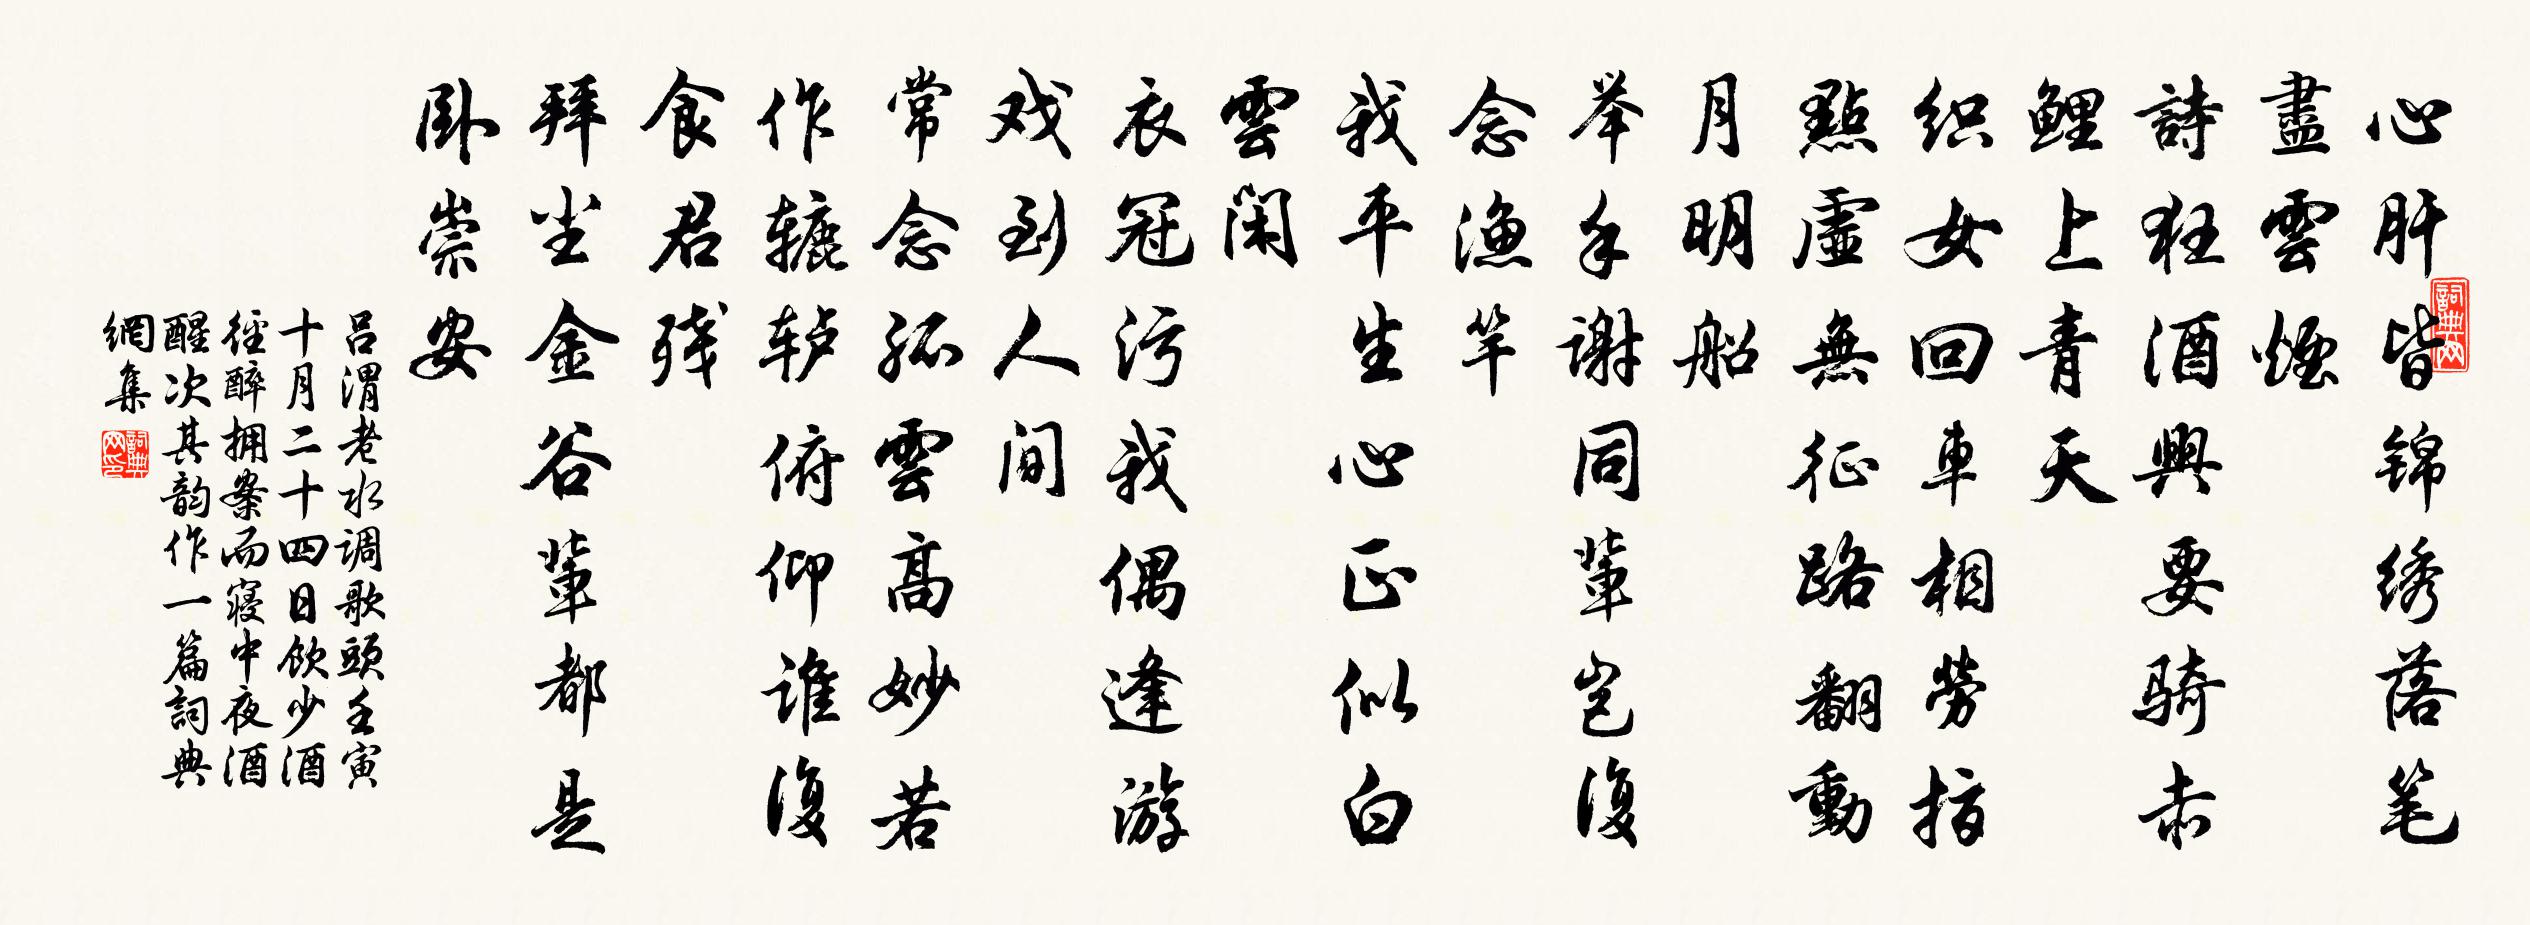 心肝皆锦绣落笔
盡雲煙
詩狂酒興要骑赤
鲤上青天
织女回車相勞指
點虛無征路翻動
月明船
举手謝同輩岂復
念渔竿
我平生心正似白
雲闲
衣冠污我偶逢游
戏到人间
常念孤雲高妙若
作辘轳俯仰谁復
食君残
拜尘金谷輩都是
卧崇安
吕渭老水调歌頭壬寅
十月二十四日飲少酒
径醉拥案而寝中夜酒
醒次其韵作一篇詞典
網集
詞典网
詞典网印